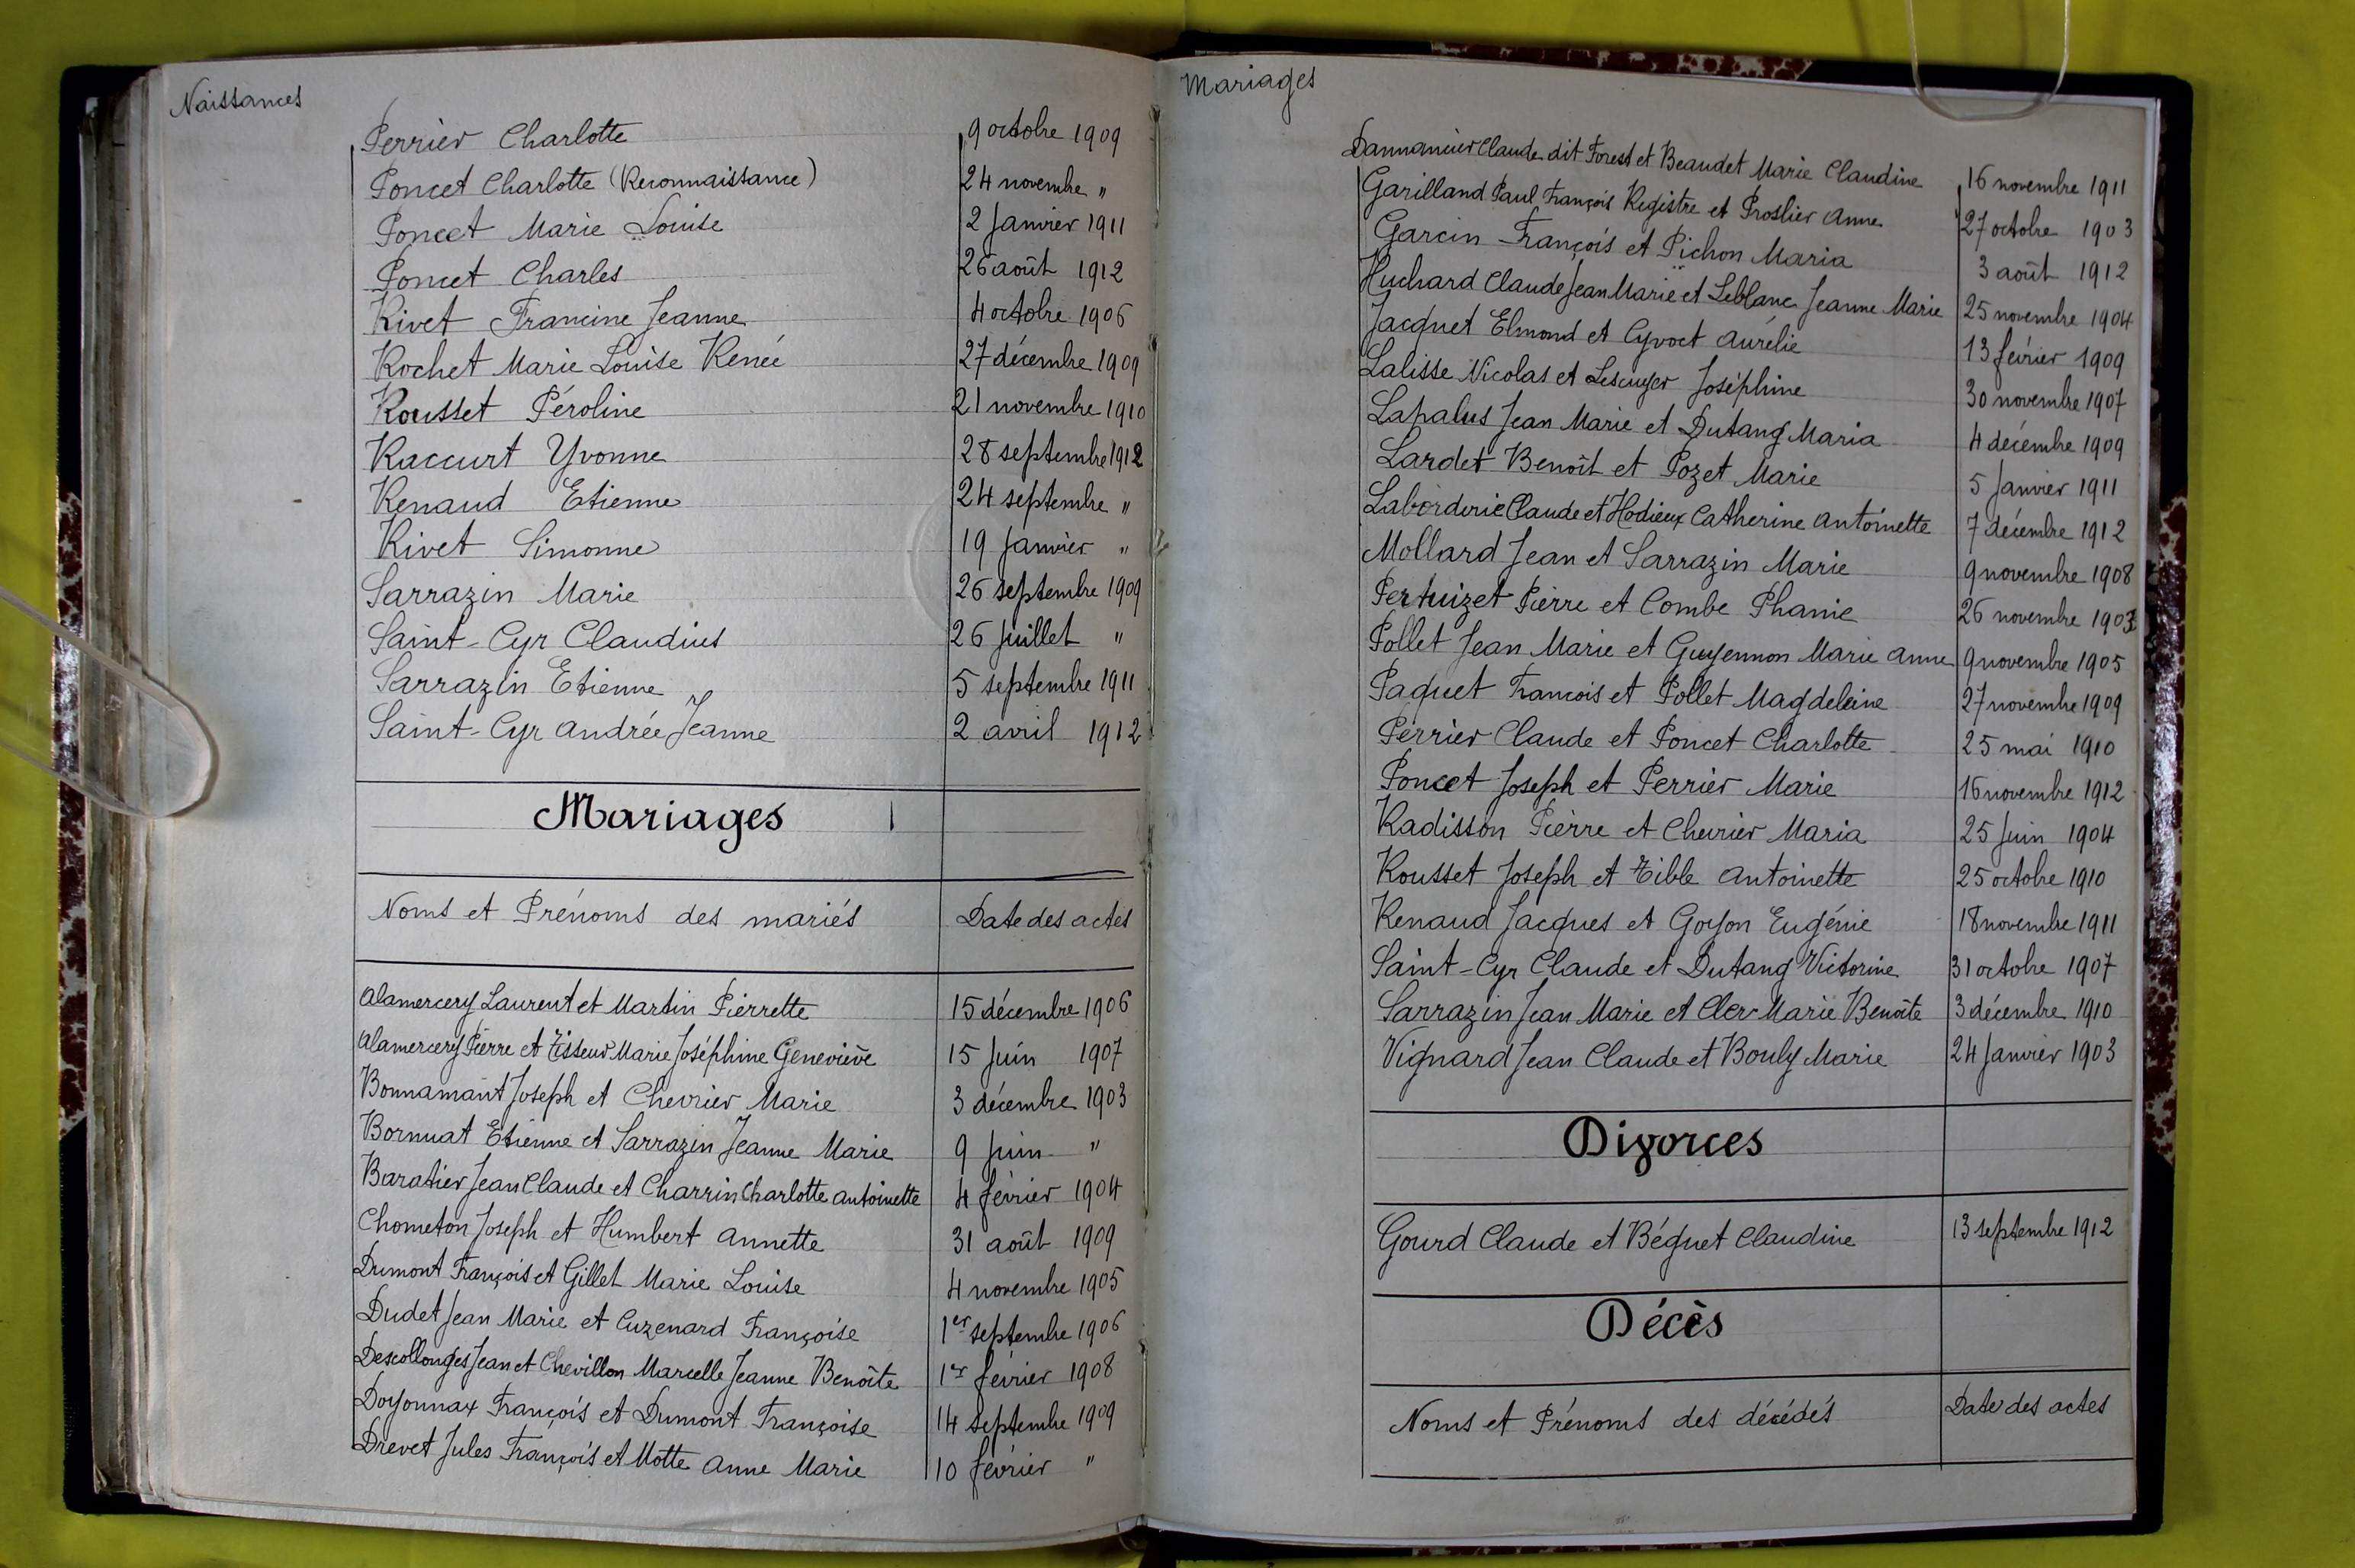 Naissances
Perrier Charlotte 9 octobre 1909
Poncet Charlotte (Reconnaissance) 24 novembre "
Poncet Marie Louise 2 Janvier 1911
Poncet Charles 26 août 1912
Rivet Francine Jeanne 4 octobre 1906
Rochet Marie Louise Renée 27 décembre 1909
Rousset Péroline 21 novembre 1910
Raccurt Yvonne 28 septembre 1912
Renaud Etienne 24 septembre "
Rivet Simonne 19 Janvier "
Sarrazin Marie 26 septembre 1909
Saint-Cyr Claudius 26 Juillet "
Sarrazin Etienne 5 septembre 1911
Saint-Cyr Andrée Jeanne 2 avril 1912
Mariages
Noms et Prénoms des mariés Date des actes
Alamercery Laurent et Martin Pierrette 15 décembre 1906
Alamercery Pierre et Tisseur Marie Joséphine Geneviève 15 Juin 1907
Bonnamant Joseph et Chevrier Marie 3 décembre 1903
Bornuat Etienne et Sarrazin Jeanne Marie 9 Juin "
Baratier Jean Claude et Charrin Charlotte Antoinette 4 février 1904
Chometon Joseph et Humbert Annette 31 août 1909
Dumont François et Gillet Marie Louise 4 novembre 1905
Dudet Jean Marie et Cuzenard Françoise 1er septembre 1906
Descollonges Jean et Chevillon Marcelle Jeanne Benoîte 1er février 1908
Doyonnax François et Dumont Françoise 14 septembre 1909
Drevet Jules François et Motte Anne Marie 10 février "
Mariages
Dannancier Claude dit Forest et Beaudet Marie Claudine 16 novembre 1911
Garilland Paul François Régistre et Proslier Anne 27 octobre 1903
Garcin François et Pichon Maria 3 août 1912
Huchard Claude Jean Marie et Leblanc Jeanne Marie 25 novembre 1904
Jacquet Elmond et Cyvoct Aurélie 13 février 1909
Lalisse Nicolas et Lescuyer Joséphine 30 novembre 1907
Lapalus Jean Marie et Dutang Maria 4 décembre 1909
Lardet Benoît et Pozet Marie 5 Janvier 1911
Laborderie Claude et Hodieux Catherine Antoinette 7 décembre 1912
Mollard Jean et Sarrazin Marie 9 novembre 1908
Pertuizet Pierre et Combe Phanie 26 novembre 1903
Pollet Jean Marie et Guyennon Marie Anne 9 novembre 1905
Paquet Francois et Pollet Magdeleine 27 novembre 1909
Perrier Claude et Poncet Charlotte 25 mai 1910
Poncet Joseph et Perrier Marie 16 novembre 1912
Radisson Pierre et Chevrier Maria 25 Juin 1904
Rousset Joseph et Tible Antoinette 25 octobre 1910
Renaud Jacques et Goyon Eugénie 18 novembre 1911
Saint-Cyr Claude et Dutang Victorine 31 octobre 1907
Sarrazin Jean Marie et Cler Marie Benoîte 3 décembre 1910
Vignard Jean Claude et Bouly Marie 24 Janvier 1903
Divorces
Gourd Claude et Béguet Claudine 13 septembre 1912
Décès
Noms et Prénoms des décédés Date des actes